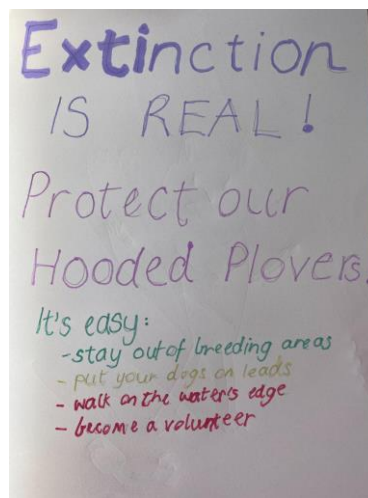 Extinction
IS REAL!
Protect our
Hooded Plovers.
It's easy:
-stay out of breeding areas
- put your dogs on leads
- walk on the water's edge
- become a volunteer